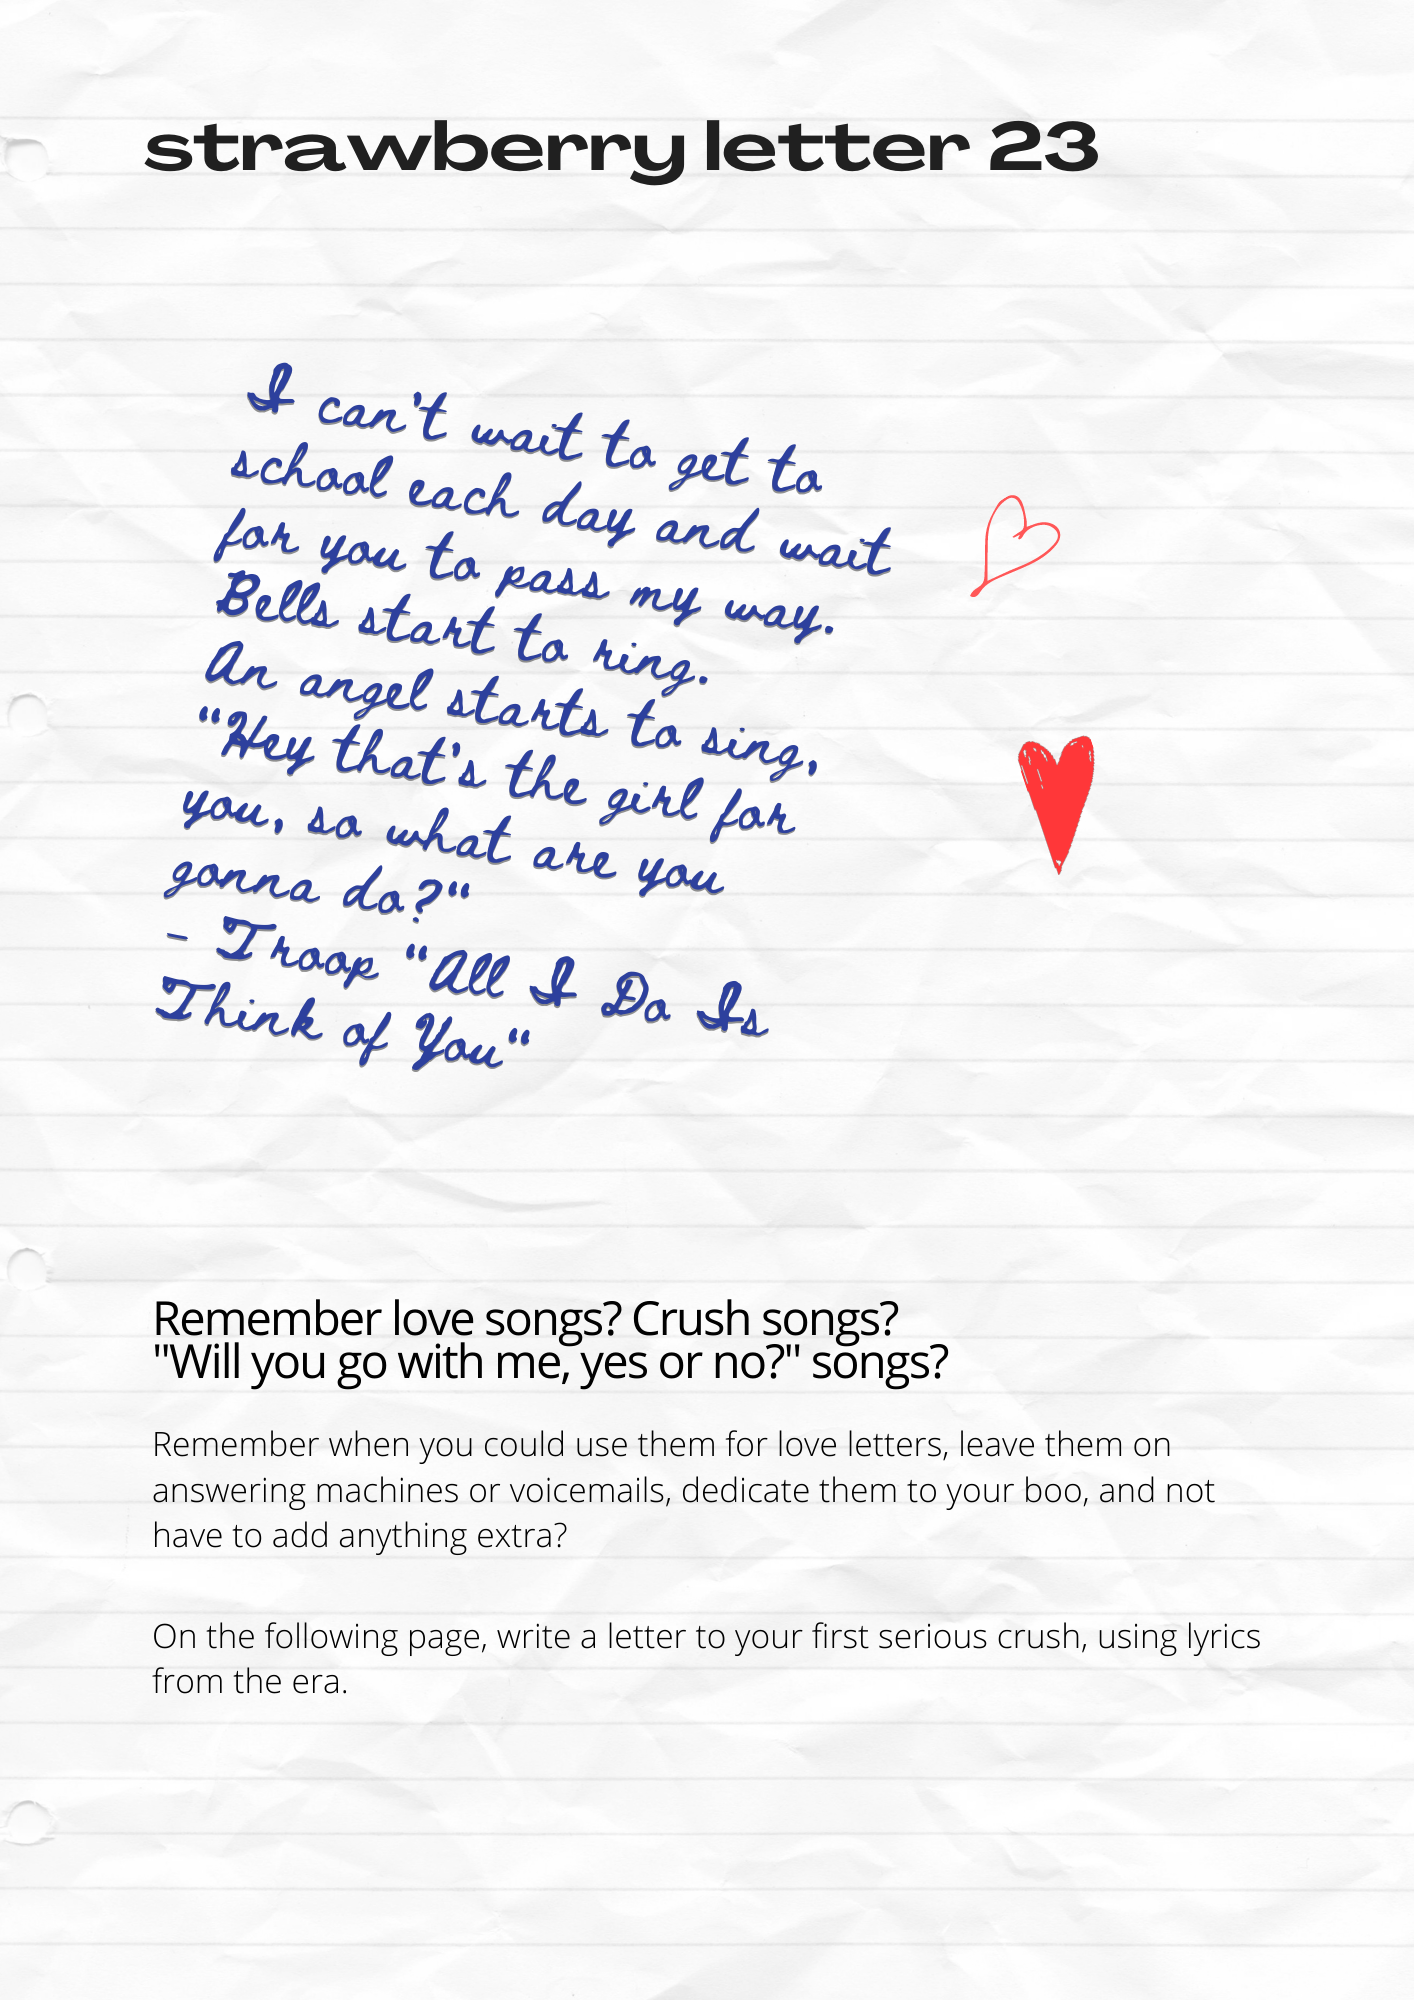 strawberry letter 23
I can't wait to get to
school each day and wait
for you to pass my way.
Bells start to ring.
An angel starts to sing,
"Hey that's the girl for
you, so what are you
gonna do?"
- Troop "All I Do Is
Think of You"
Remember love songs? Crush songs?
"Will you go with me, yes or no?" songs?
Remember when you could use them for love letters, leave them on
answering machines or voicemails, dedicate them to your boo, and not
have to add anything extra?
On the following page, write a letter to your first serious crush, using lyrics
from the era.